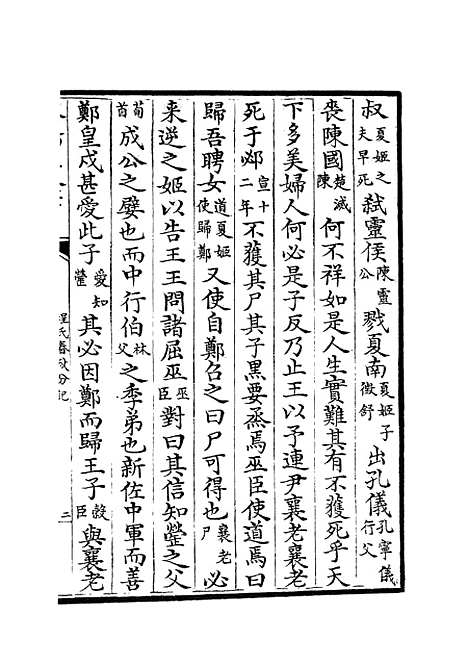 叔夏姬之夫早死弑靈侯陳靈公戮夏南夏姬子徵舒出孔儀孔寧儀行父
喪陳國楚滅陳何不祥如是人生實難其有不獲死乎天
下多美婦人何必是子反乃止王以予連尹襄老襄老
死于邲宣十二年不獲其尸其子黑要烝焉巫臣使道焉曰
歸吾聘女道夏姬使歸鄭又使自鄭召之曰尸可得也襄老尸必
来逆之姬以告王王問諸屈巫巫臣對曰其信知罃之父
荀首成公之嬖也而中行伯林父之季弟也新佐中軍而善
鄭皇戌甚愛此子愛知罃其必因鄭而歸王子榖臣與襄老
程氏春秋分記
二